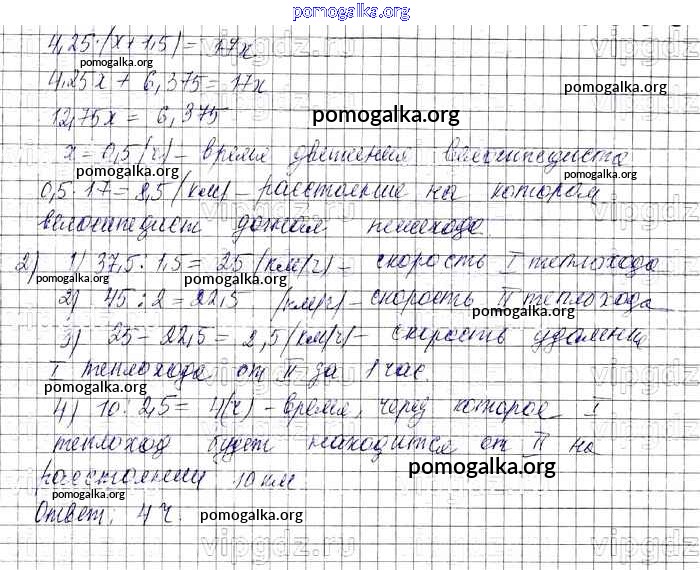 pomogalka.org
4,25·(x+1,5)=17x
pomogalka.org
4,25x + 6,375=17x
pomogalka.org
12,75x = 6,375
pomogalka.org
x=0,5(ч) - время движения велосипедиста
pomogalka.org
0,5·17=8,5(км) - расстояние на котором
pomogalka.org
велосипедист догнал пешехода.
2) 1) 37,5:1,5=25(км/ч) - скорость I теплохода
pomogalka.org pomogalka.org pomogalka.org
2) 45:2=22,5 (км/ч) - скорость II теплохода
pomogalka.org
3) 25-22,5=2,5(км/ч) - скорость удаления
pomogalka.org
I теплохода от II за 1 час.
4) 10:2,5=4(ч) - время, через которое I
pomogalka.org
теплоход будет находится от II на
pomogalka.org
расстоянии 10 км
pomogalka.org
Ответ: 4 ч.
pomogalka.org
vipgdz.ru